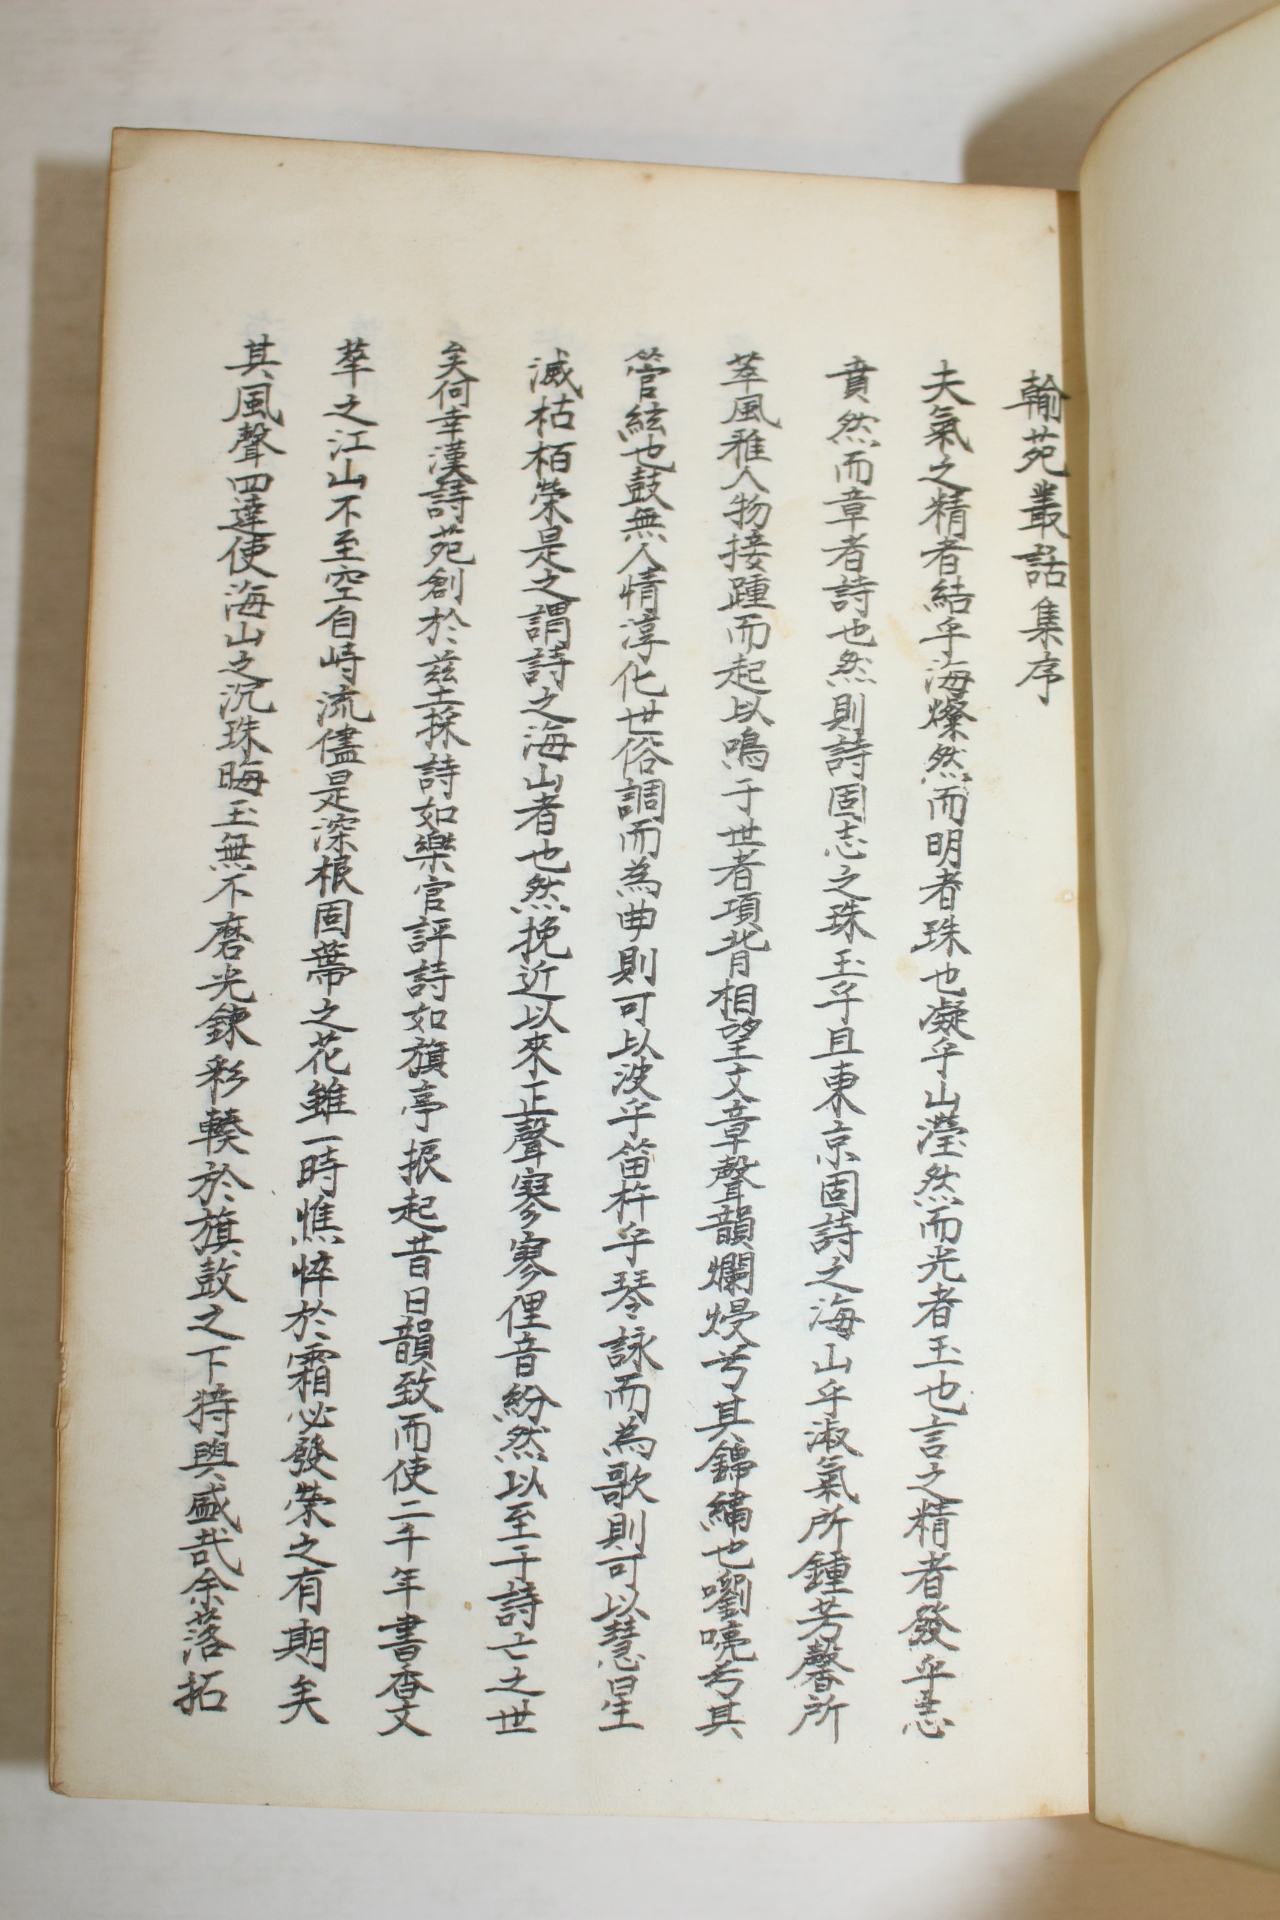 翰苑叢話集序
夫氣之精者結乎海燦然而明者珠也凝乎山瀅然而光者玉也言之精者發乎志
賁然而章者詩也然則詩固志之珠玉乎且東京固詩之海山乎淑氣所鍾芳馨所
萃風雅人物接踵而起以鳴于世者項背相望文章聲韻爛熳兮其錦繡也嚠喨兮其
管絃也鼓無人情淳化世俗調而為曲則可以波乎笛杵乎琴詠而為歌則可以慧星
滅枯栢榮是之謂詩之海山者也然挽近以來正聲寥寥俚音紛然以至于詩亡之世
矣何幸漢詩苑創於茲土採詩如樂官評詩如旗亭振起昔日韻致而使二千年書香文
萃之江山不至空自峙流儘是深根固蔕之花雖一時憔悴於霜必發榮之有期矣
其風聲四達使海山之沉珠晦玉無不磨光鍊彩輳於旗鼓之下猗與盛哉余落拓